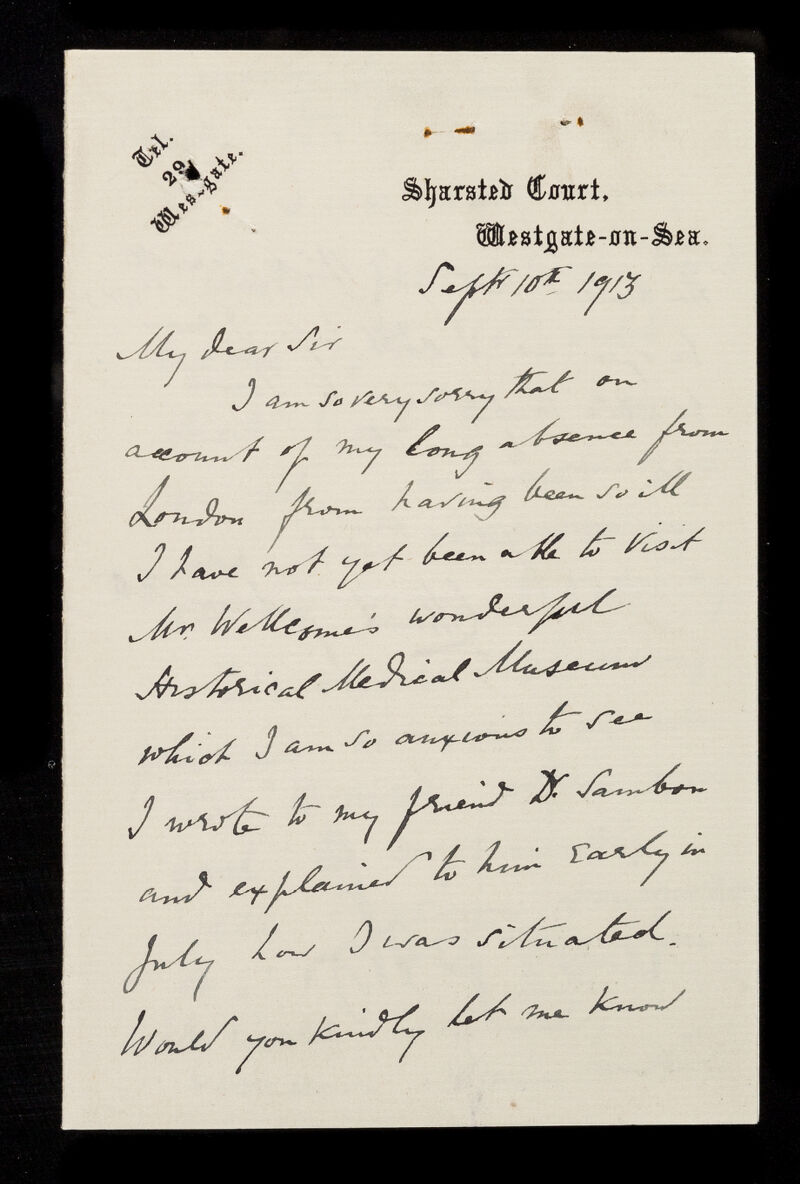 Tel.
29
Westgate.
Sharsted Court,
Westgate-on-Sea.
Septr 10th 1913
My dear Sir
I am so very sorry that on
account of my long absence from
London from having been so ill
I have not yet been able to visit
Mr. Wellcome's wonderful
Historical Medical Museum
which I am so anxious to see
I wrote to my friend Dr. Sambon
and explained to him early in
July how I was situated.
Would you kindly let me know